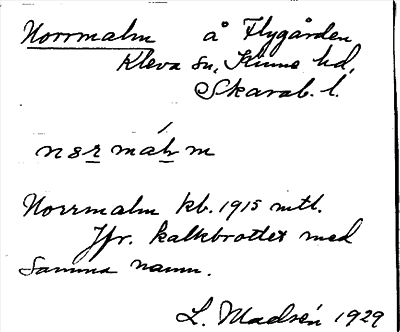 Norrmalm å Flygården
Kleva sn, Kinne hd,
Skarab. l.
Norrmalm kb. 1915 mtl.
Jfr. kalkbrottet med
samma namn.
L. Madsén 1929